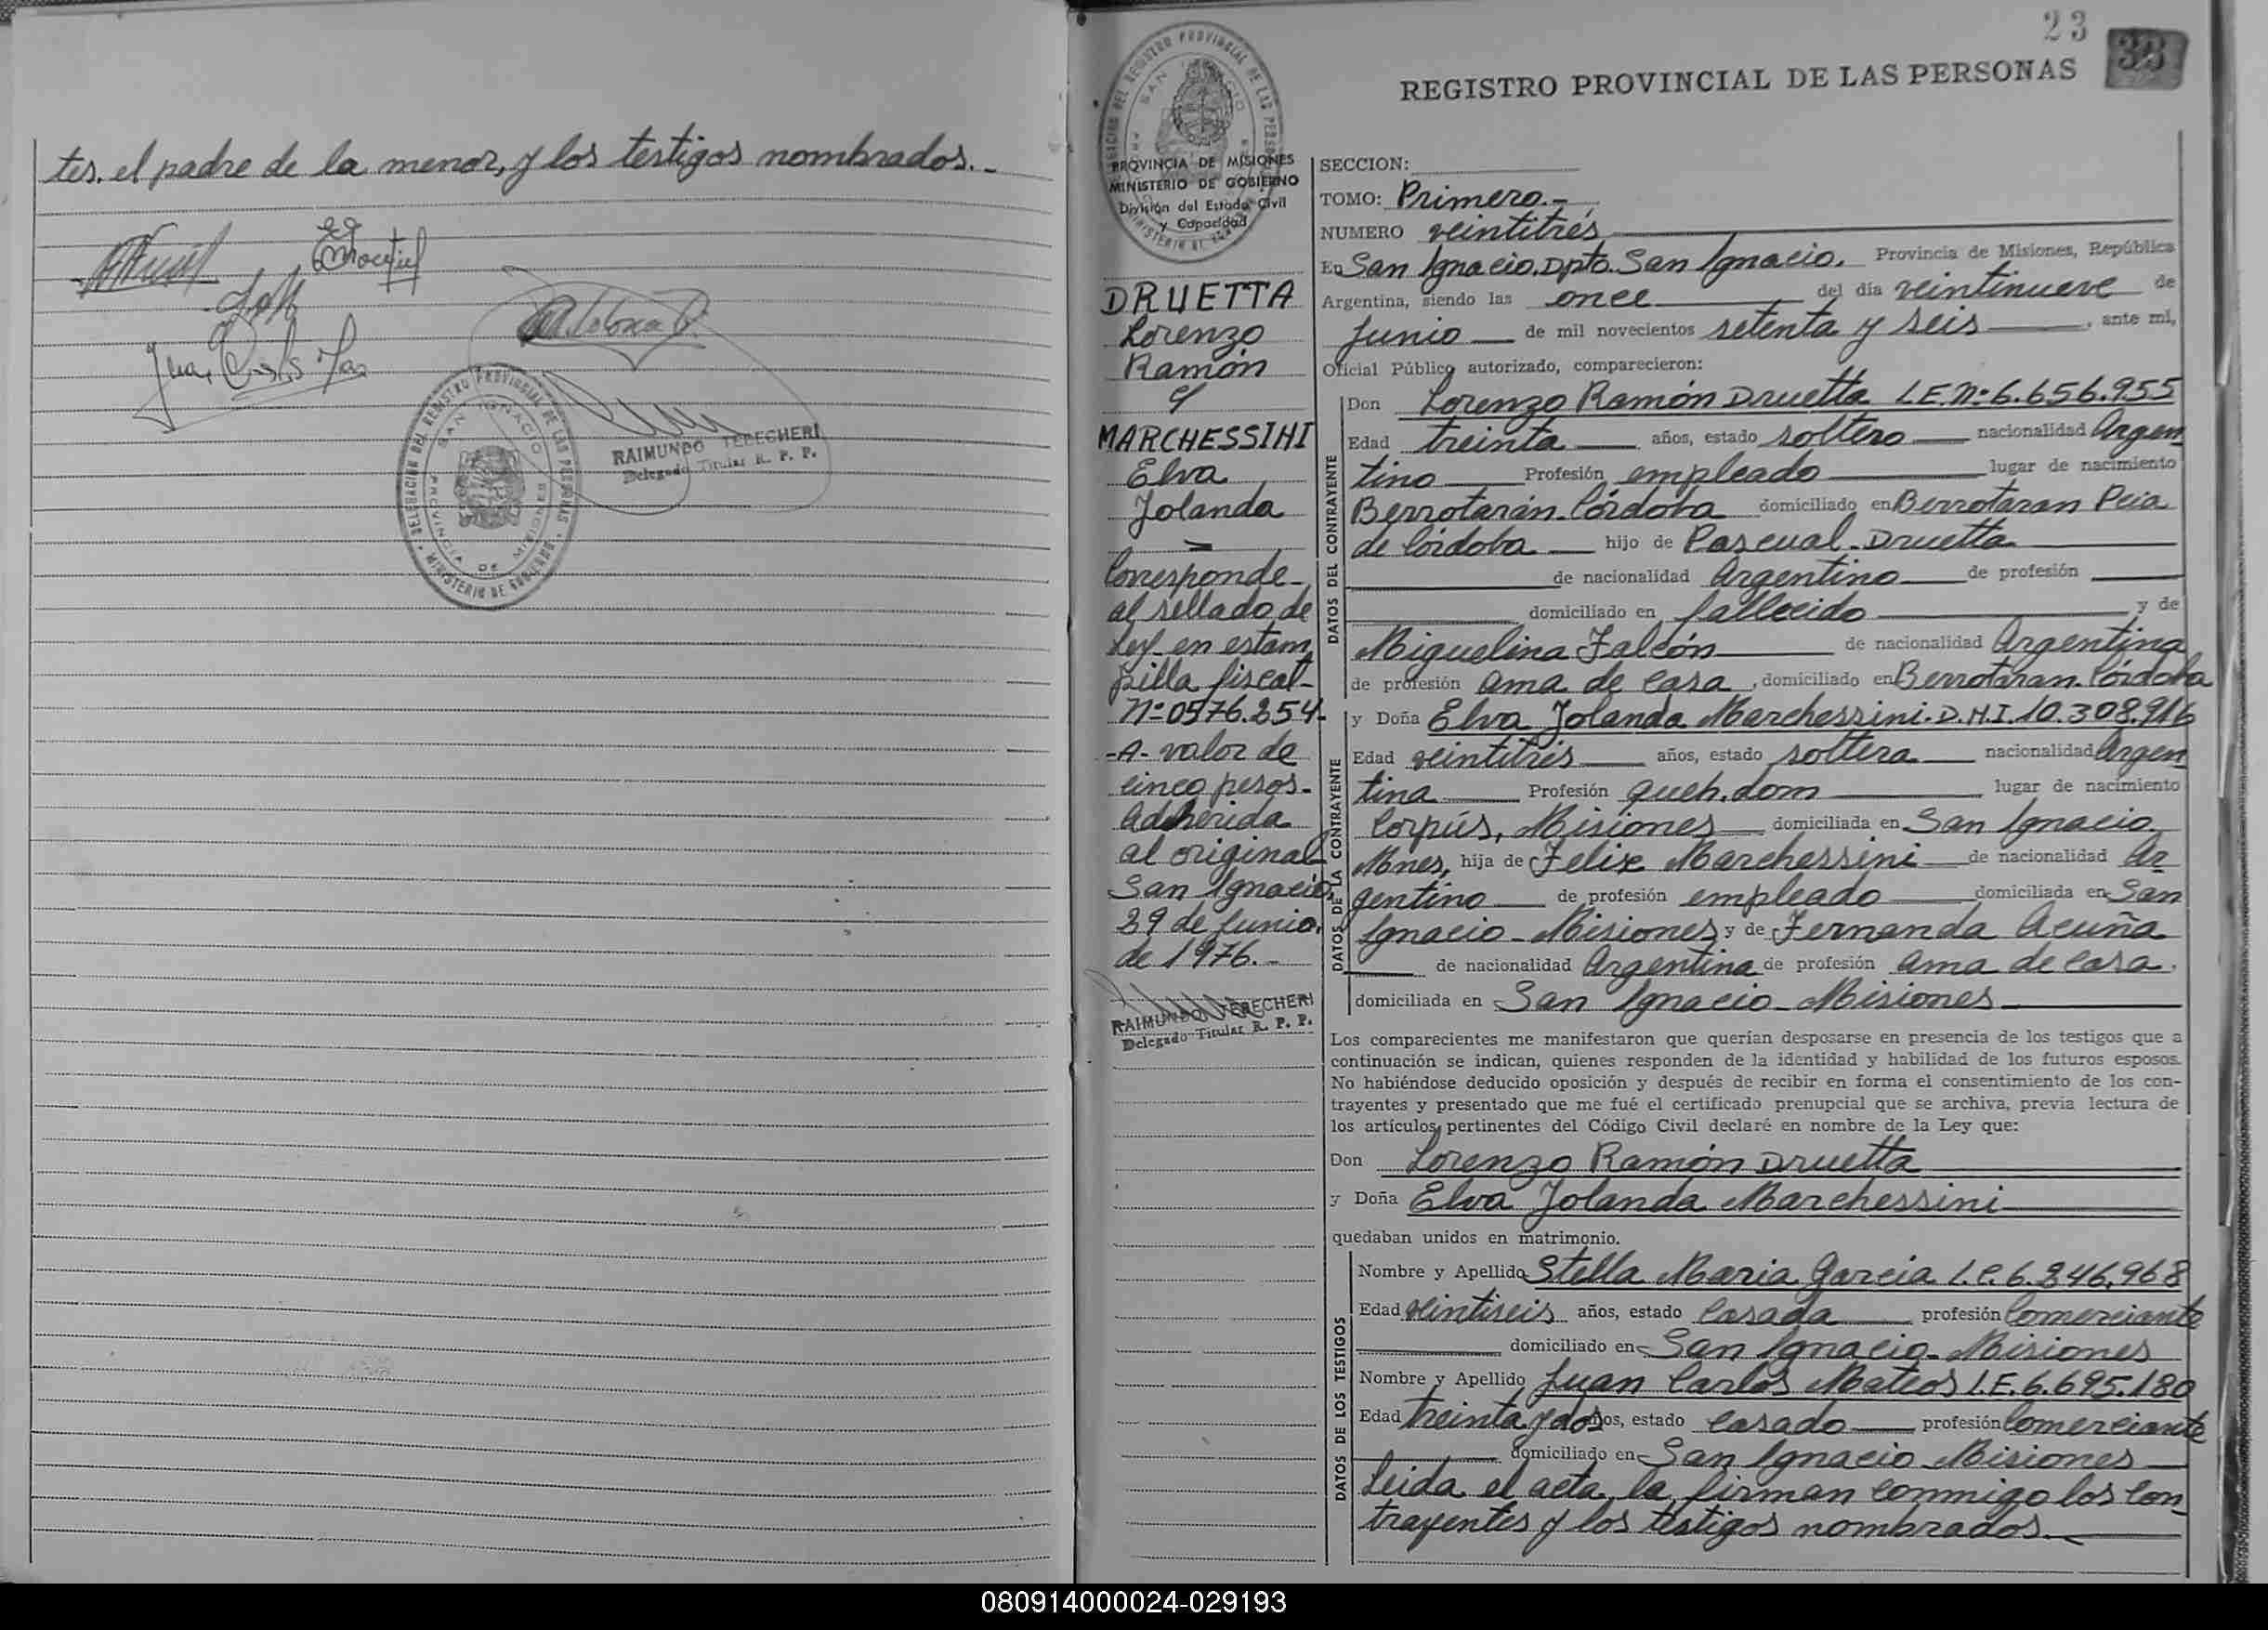 tes. el padre de la menor, y los testigos nombrados.-
RAIMUNDO TERECHERI
Delegado Titular R. P. P.
DELEGACION DEL REGISTRO PROVINCIAL DE LAS PERSONAS
SAN IGNACIO
PROVINCIA DE MISIONES
MINISTERIO DE GOBIERNO
23
33
REGISTRO PROVINCIAL DE LAS PERSONAS
PROVINCIA DE MISIONES
MINISTERIO DE GOBIERNO
División del Estado Civil
y Capacidad
DRUETTA
Lorenzo
Ramón
y
MARCHESSINI
Elva
Jolanda
Corresponde-
al sellado de
Ley en estam
pilla fiscal-
Nº 0576.254-
-A- valor de
cinco pesos-
Adherida
al original
San Ignacio,
29 de Junio,
de 1976.-
RAIMUNDO TERECHERI
Delegado Titular R. P. P.
SECCION:
TOMO: Primero.-
NUMERO veintitrés
En San Ignacio, Dpto. San Ignacio, Provincia de Misiones, República
Argentina, siendo las once del día veintinueve de
Junio de mil novecientos setenta y seis, ante mi,
Oficial Público autorizado, comparecieron:
DATOS DEL CONTRAYENTE
Don Lorenzo Ramón Druetta L.E.Nº 6.656.955
Edad treinta años, estado soltero nacionalidad Argen
tino Profesión empleado lugar de nacimiento
Berrotarán-Córdoba domiciliado en Berrotaran Pcia
de Córdoba hijo de Pascual Druetta
de nacionalidad Argentino de profesión
domiciliado en fallecido y de
Miguelina Falcón de nacionalidad Argentina
de profesión ama de casa, domiciliado en Berrotaran-Córdoba
DATOS DE LA CONTRAYENTE
y Doña Elva Jolanda Marchessini. D.N.I. 10.308.916
Edad veintitrés años, estado soltera nacionalidad Argen
tina Profesión queh. dom lugar de nacimiento
Corpús, Misiones domiciliada en San Ignacio
Mnes, hija de Felix Marchessini de nacionalidad Ar
gentino de profesión empleado domiciliada en San
Ignacio-Misiones y de Fernanda Acuña
de nacionalidad Argentina de profesión ama de casa.
domiciliada en San Ignacio-Misiones
Los comparecientes me manifestaron que querían desposarse en presencia de los testigos que a
continuación se indican, quienes responden de la identidad y habilidad de los futuros esposos.
No habiéndose deducido oposición y después de recibir en forma el consentimiento de los con-
trayentes y presentado que me fué el certificado prenupcial que se archiva, previa lectura de
los artículos pertinentes del Código Civil declaré en nombre de la Ley que:
Don Lorenzo Ramón Druetta
y Doña Elva Jolanda Marchessini
quedaban unidos en matrimonio.
DATOS DE LOS TESTIGOS
Nombre y Apellido Stella Maria Garcia L.C. 6.246.968
Edad veintiseis años, estado Casada profesión Comerciante
domiciliado en San Ignacio-Misiones
Nombre y Apellido Juan Carlos Mateos L.E. 6.695.180
Edad treinta y dos años, estado casado profesión Comerciante
domiciliado en San Ignacio-Misiones
Leida el acta, la firman conmigo los con
trayentes y los testigos nombrados.-
080914000024-029193